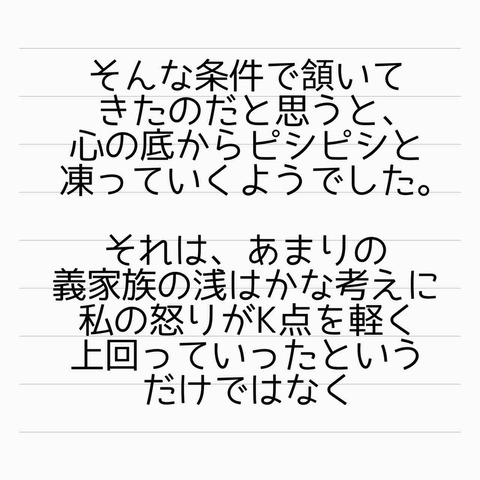 そんな条件で頷いて
きたのだと思うと、
心の底からピシピシと
凍っていくようでした。
それは、あまりの
義家族の浅はかな考えに
私の怒りがK点を軽く
上回っていったという
だけではなく